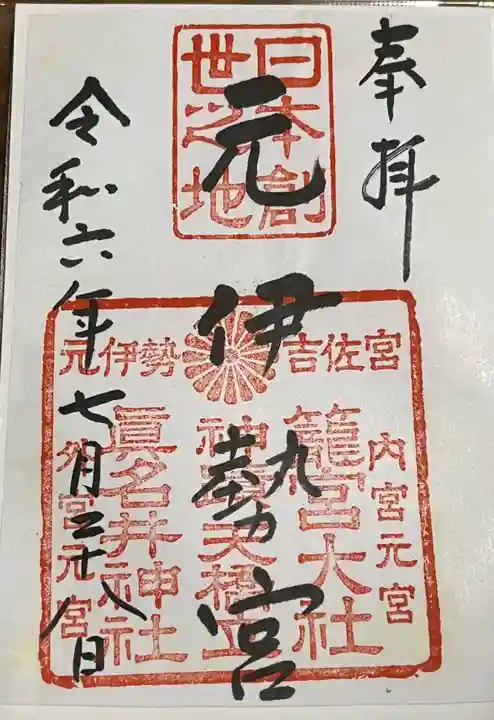 奉拝
日本創
世之地
元伊勢宮
吉佐宮
元伊勢
内宮元宮
籠宮大社
神宮天橋立
眞名井神社
外宮元宮
令和六年七月二十八日